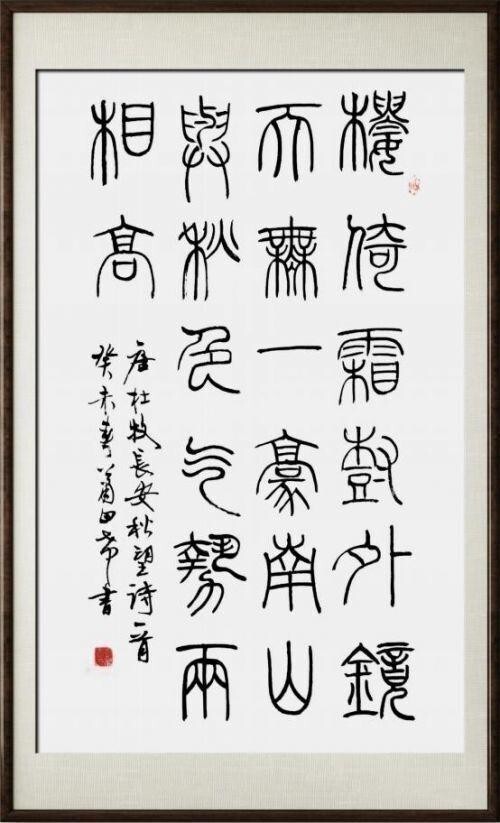 樓倚霜樹外鏡
天無一豪南山
與秋色气勢兩
相高
唐杜牧長安秋望詩一首
癸未春田書